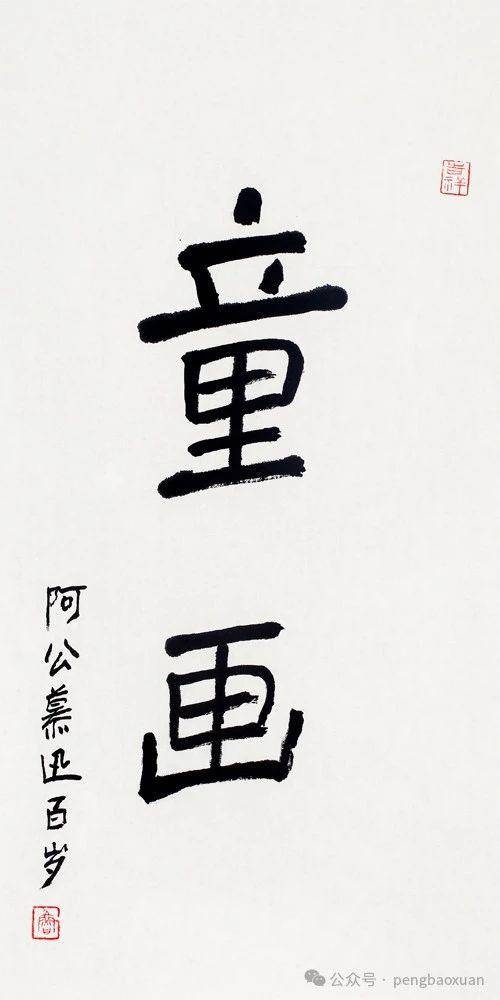 童画
阿公慕迅百岁
吉祥
公众号 · pengbaoxuan